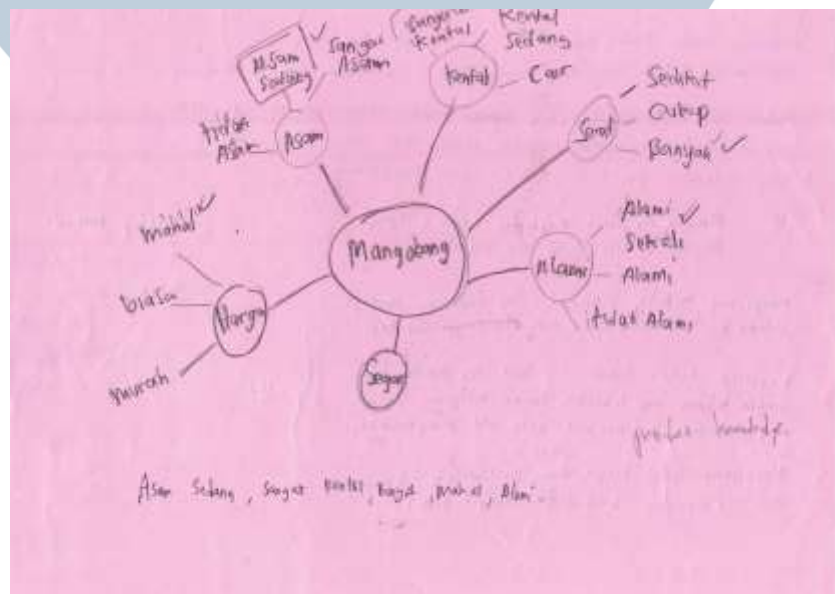 Asam
Sedang
Sangat
Asam
Tidak
Asam
Asam
Sangat
Kental
Kental
Sedang
Kental
Cair
Serat
Sedikit
Cukup
Banyak
Mangobang
Alami
Alami
Sekali
Alami
tidak Alami
Segar
Harga
mahal
biasa
murah
Asam Sedang, Sangat Kental, Banyak, Mahal, Alami.